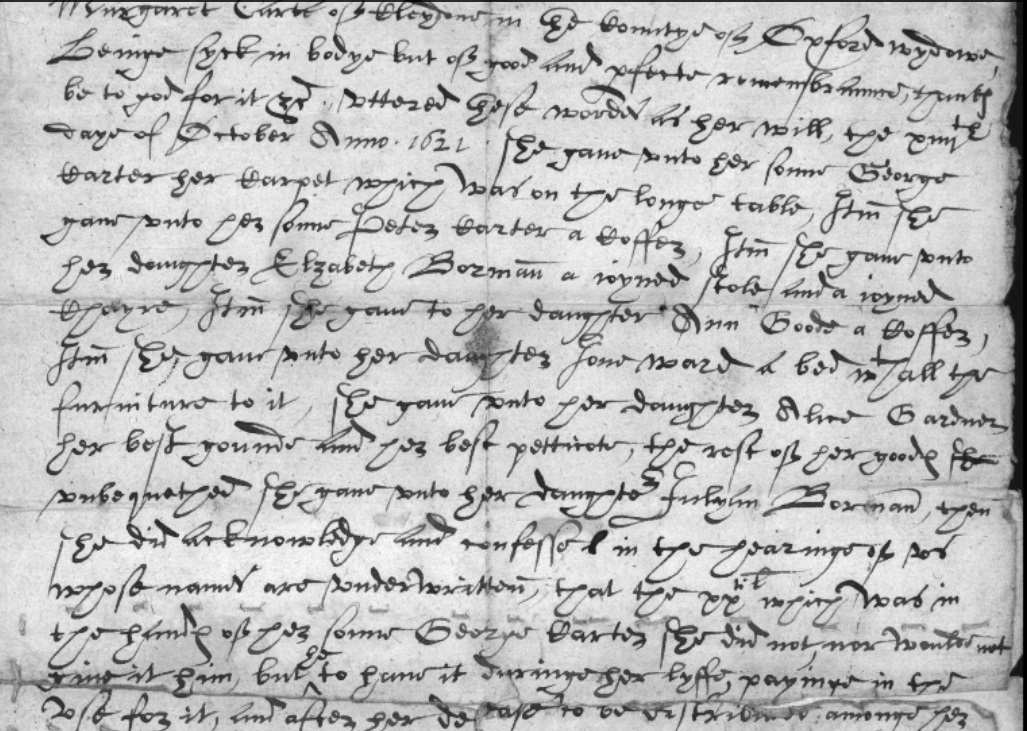 Margaret Carte of Kleydone in the Kountye of Oxford wydowe
Beinge syck in bodye but of good and pfecte remembrannce, thankes
be to god for it &c, uttered these wordes as her will, the xiiijth
daye of October Anno . 1621 . she gave unto her sonne George
Karter her Karpet which was on the longe table, Itm she
gave unto her sonne Peter Karter a Koffer, Itm she gave unto
her daughter Elzabeth Borman a ioyned stole and a ioyned
Khayre, Itm she gave to her daughter Ann Goode a Koffer,
Itm she gave unto her daughter Jone Ward a bed wth all the
furniture to it, she gave unto her daughter Alice Gardner
her best gounde and her best petticote, the rest of her goodes
unbequethed she gave unto her daughter Borman, then
she did acknowledge and confesse in the hearinge of us
whose names are underwritten, that the xxtil which was in
the handes of her sonne George Karter she did not nor would not
give it him, but he to have it duringe her lyffe, payinge in the
Use for it, and after her decease to be distributed amonge her